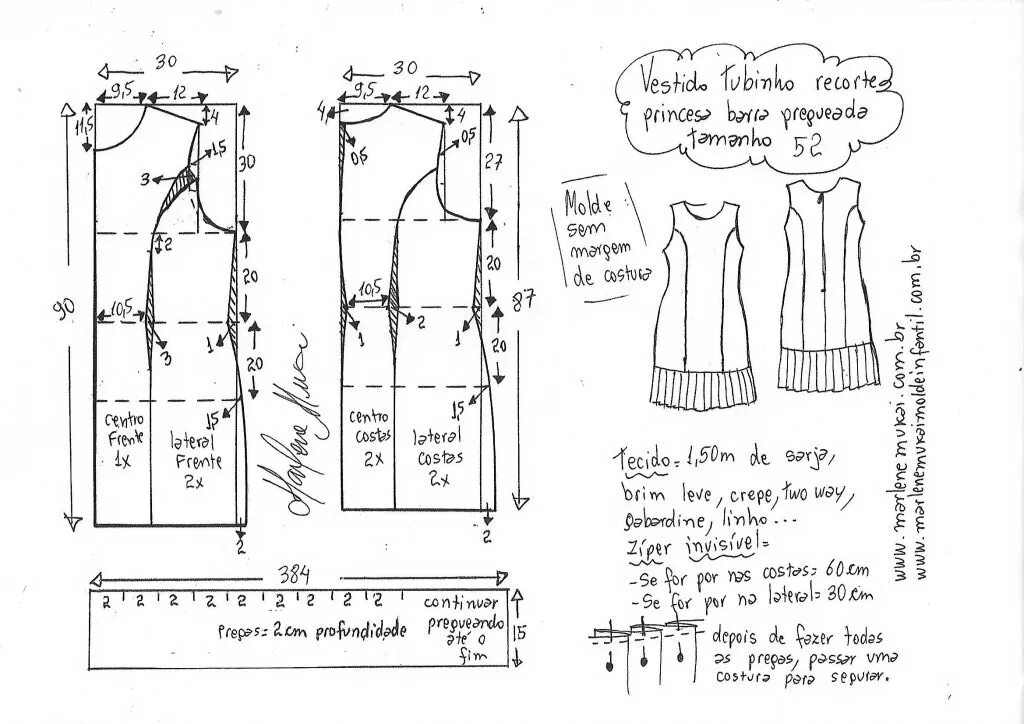 Vestido tubinho recortes
princesa barra pregueada
tamanho 52
30
9,5
12
11,5
4
1,5
3
30
2
20
10,5
90
3
1
20
1,5
centro
Frente
1x
lateral
Frente
2x
2
Marlene Mukai
30
9,5
12
4
4
0,5
0,5
27
20
10,5
87
1
2
1
20
1,5
centro
costas
2x
lateral
costas
2x
2
Molde
sem
margem
de costura
www.marlenemukai.com.br
www.marlenemukaimoldeinfantil.com.br
384
2 2 2 2 2 2 2 2 2
continuar
pregueando
até o
fim
Pregas= 2 cm profundidade
15
Tecido= 1,50m de sarja,
brim leve, crepe, two way,
gabardine, linho...
Zíper invisível=
-Se for por nas costas= 60cm
-Se for por na lateral= 30cm
depois de fazer todas
as pregas, passar uma
costura para segurar.